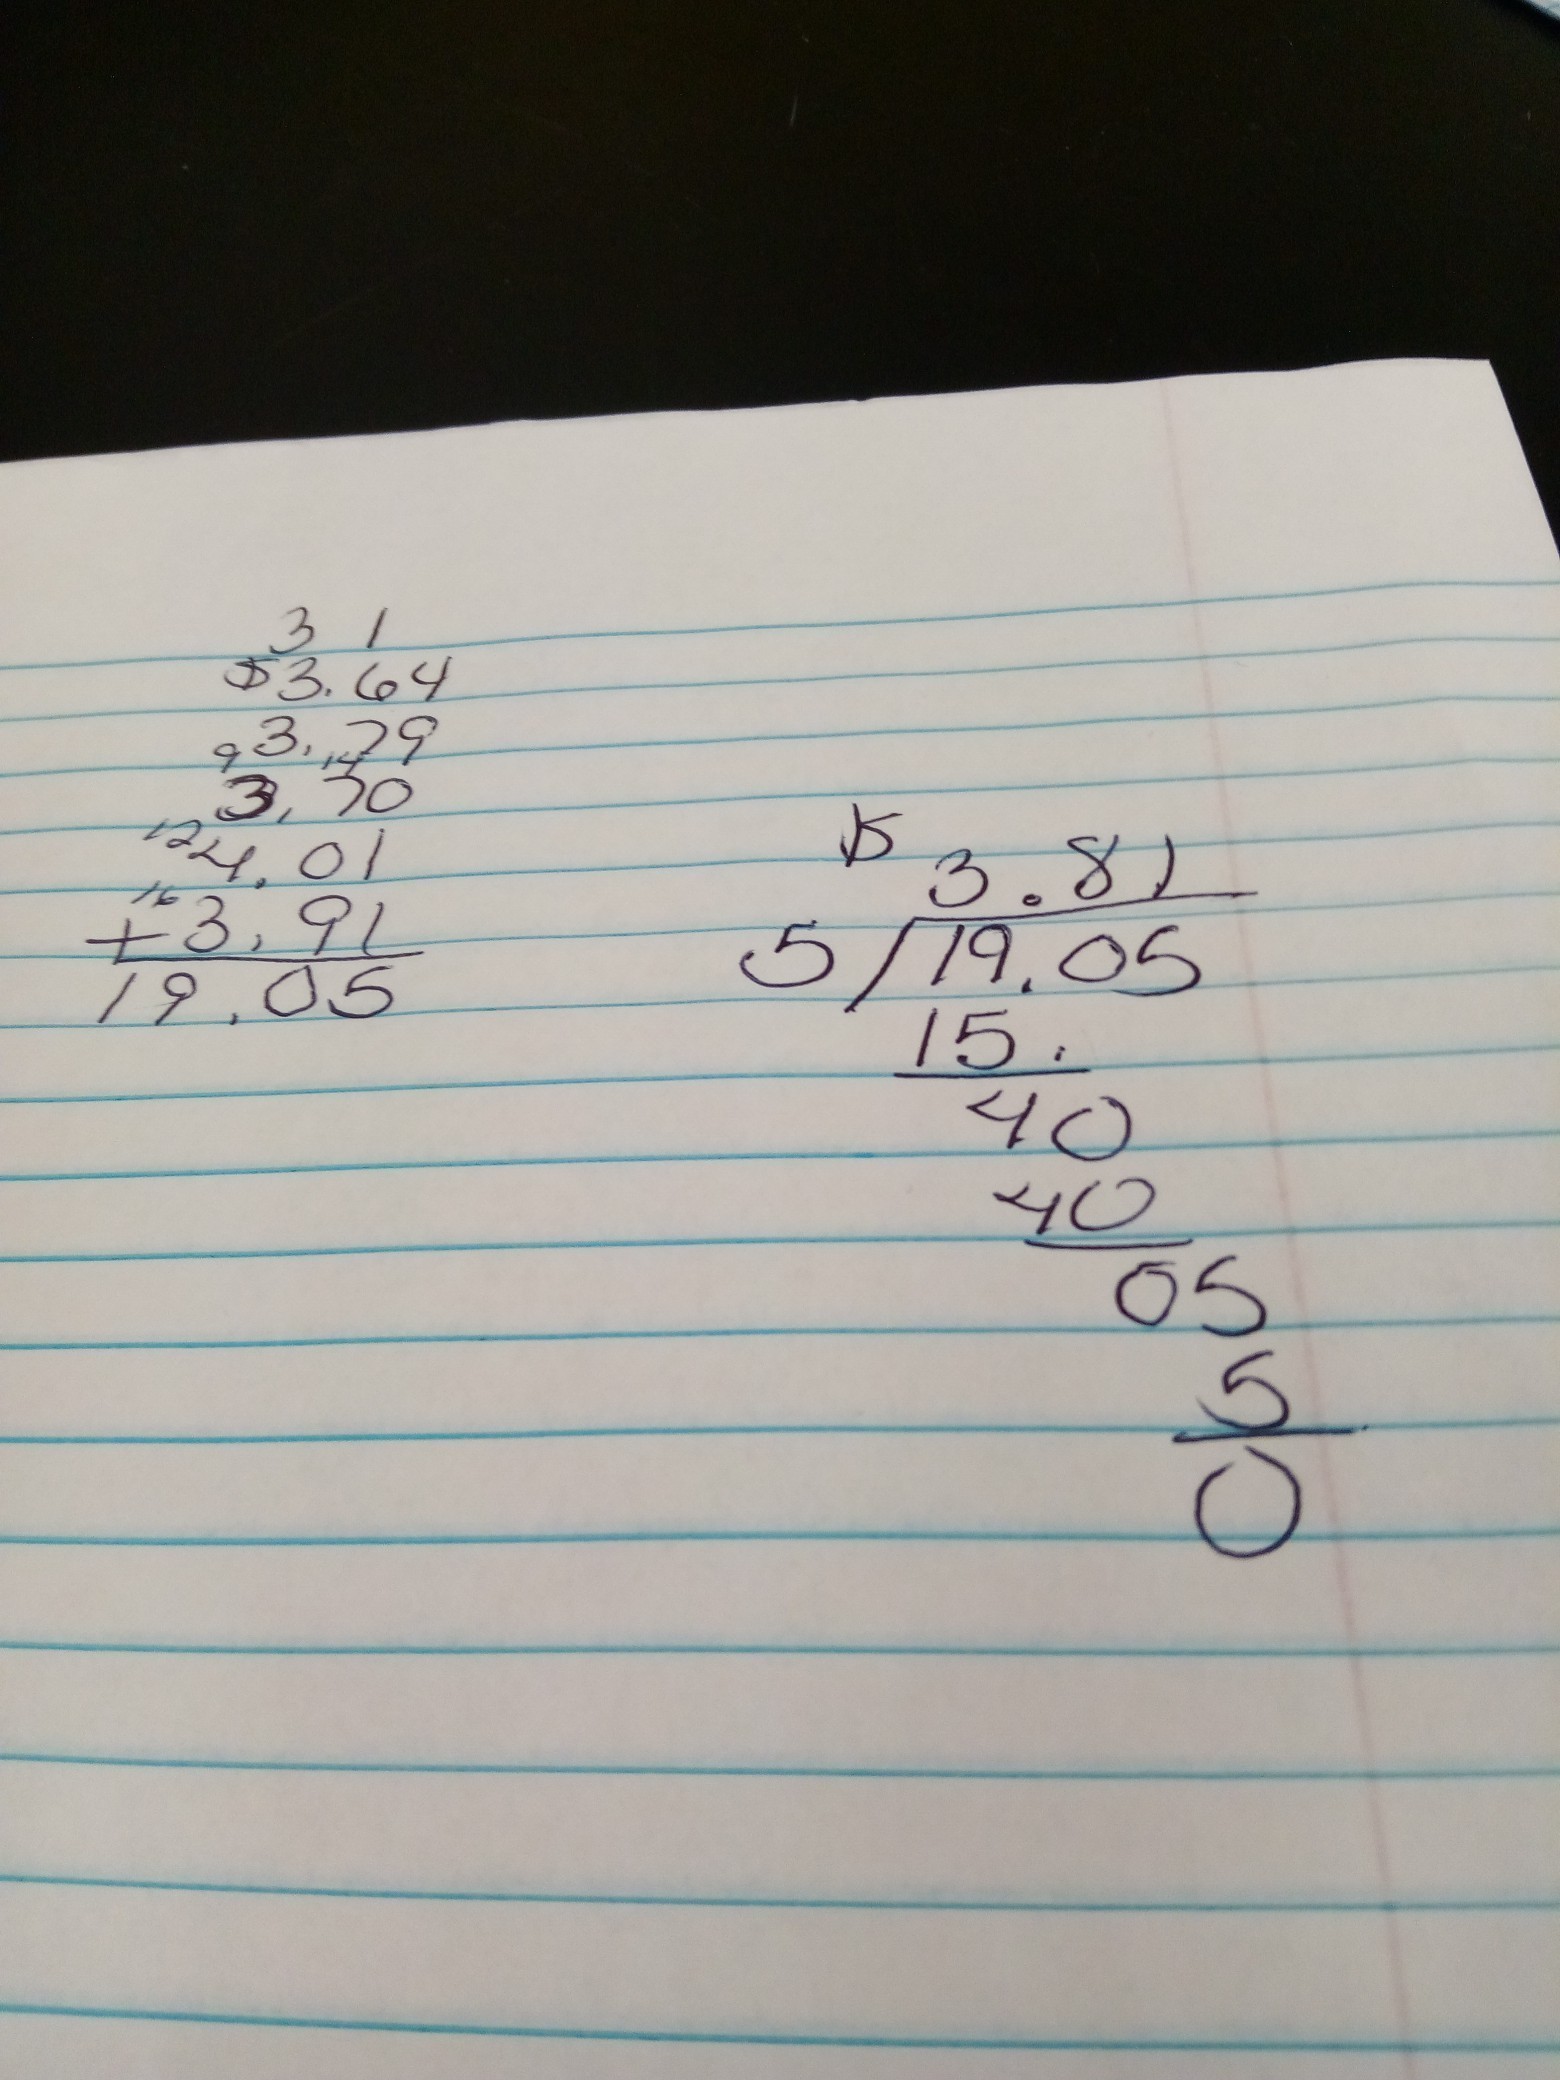 3 1
$3.64
3.79
9 14
3.70
12 4.01
16
+3.91
19.05
$ 3.81
5 19.05
15.
40
40
05
5
0